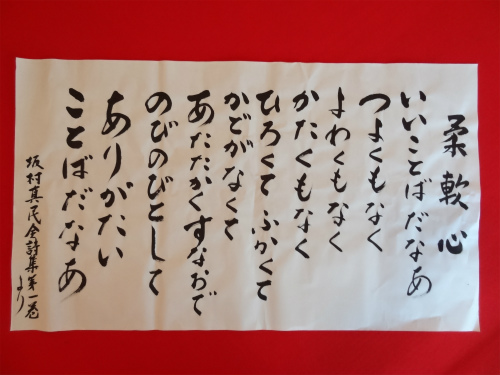 柔軟心
いいことばだなあ
つよくもなく
よわくもなく
かたくもなく
ひろくてふかくて
かどがなくて
あたたかくすなおで
のびのびとして
ありがたい
ことばだなあ
坂村真民全詩集第一巻
より